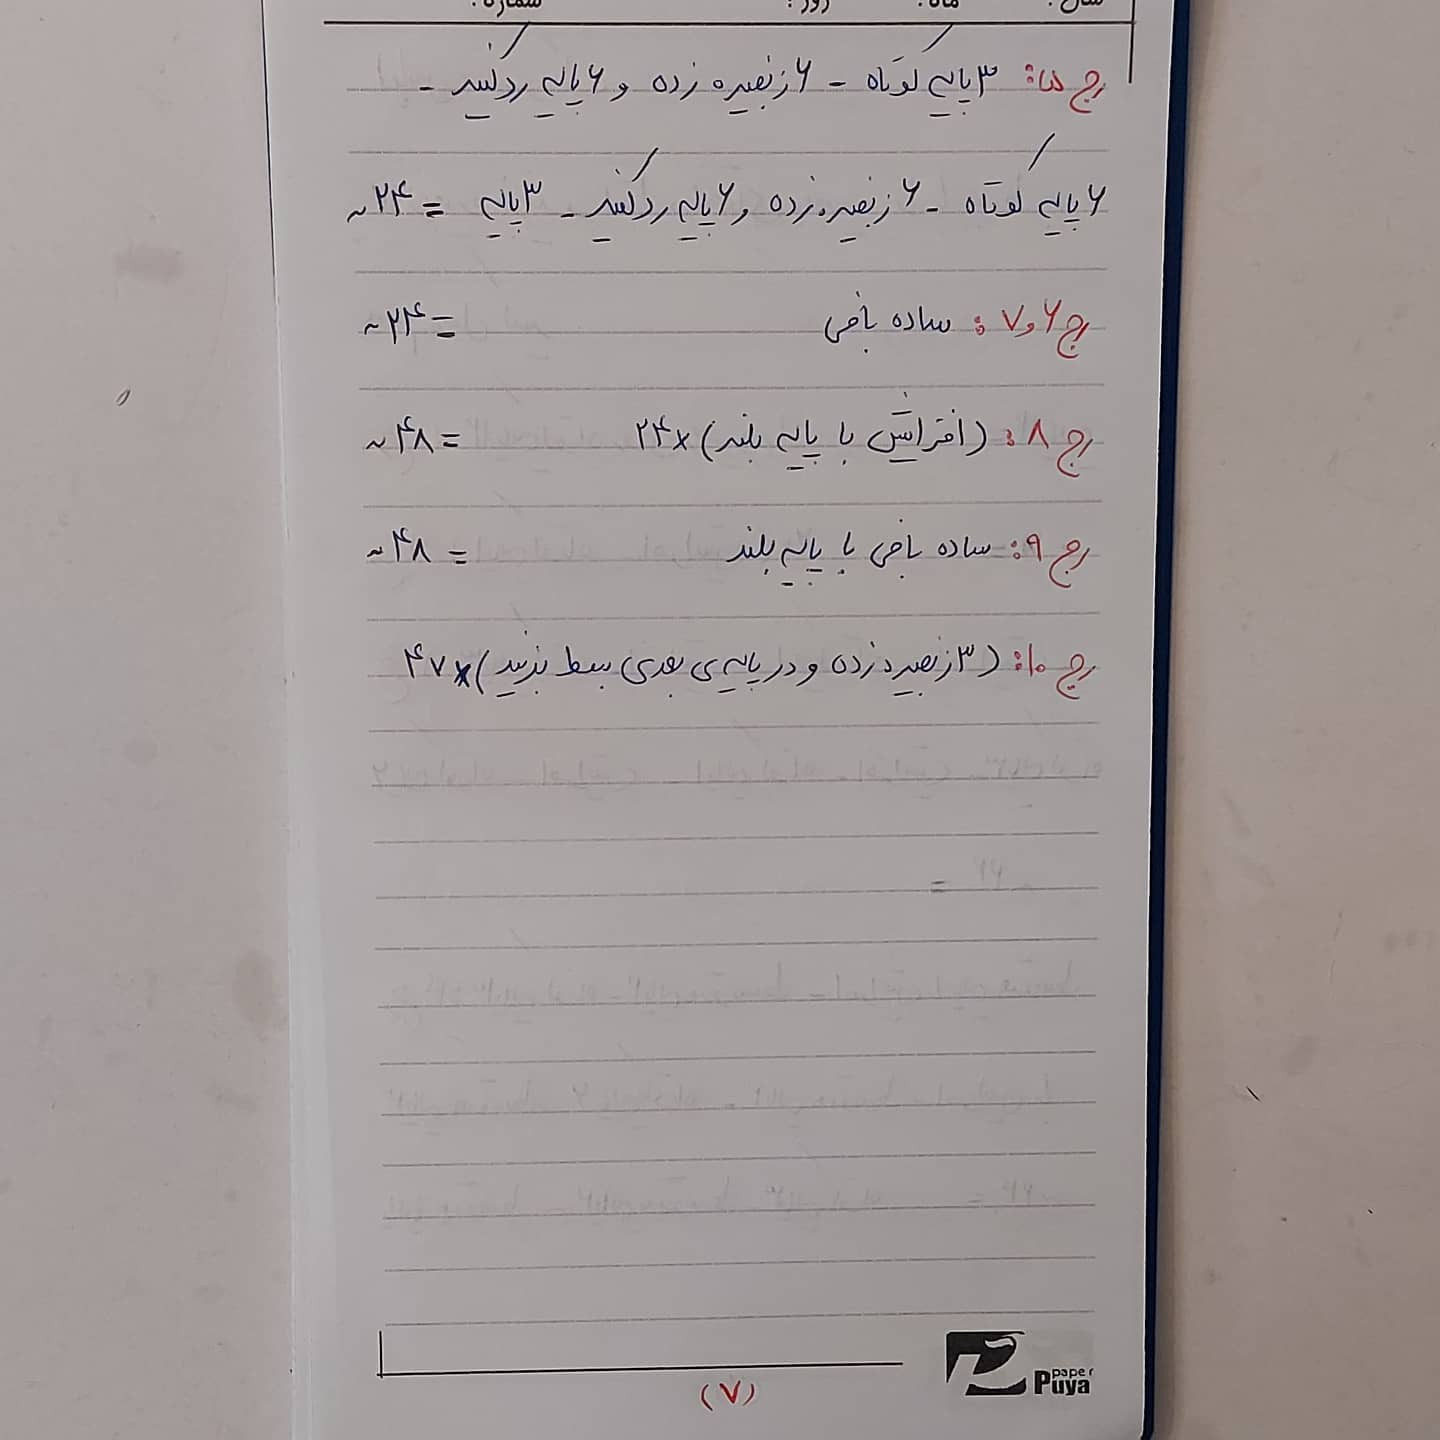 سال: ماه: روز: شماره:
رج ۵: ۳ پایه کوتاه - ۶ زنجیره زده و ۶ پایه رد کنید -
۶ پایه کوتاه - ۶ زنجیره زده و ۶ پایه رد کنید - ۳ پایه = ۲۴~
رج ۶ و ۷: ساده بافی = ۲۴~
رج ۸: (افزایش با پایه بلند)×۲۴ = ۴۸~
رج ۹: ساده بافی با پایه بلند = ۴۸~
رج ۱۰: (۳ زنجیره زده و در پایه‌ی بعدی بسط بزنید)×۴۷
paper
Puya
(۷)